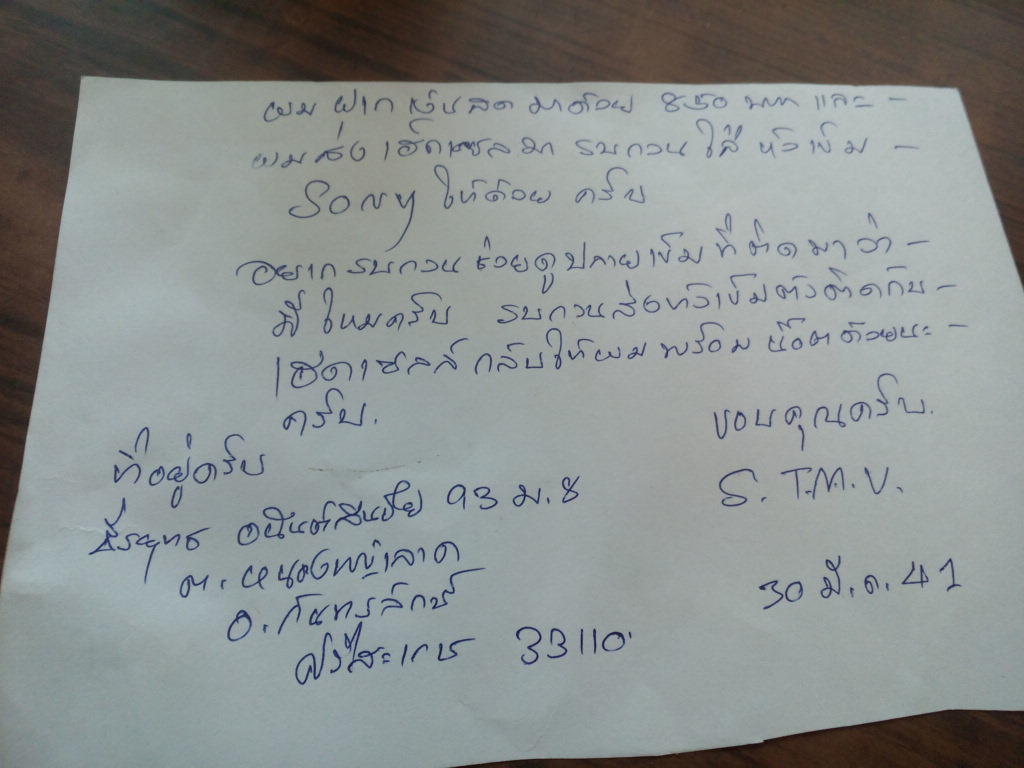 ผม ฝาก เงินสด มาด้วย 850 บาท และ -
ผมส่ง เฮดเชลมา รบกวน ใส่ หัวเข็ม -
Sony ให้ด้วย ครับ
อยาก รบกวน ช่วยดูปลายเข็ม ที่ ติด มา ว่า -
ดี ไหมครับ รบกวนส่งหัวเข็มตัวติดกับ -
เฮดเชลล์ กลับให้ผม พร้อม น๊อตด้วยนะ -
ครับ.
ขอบคุณครับ.
S. T.M.V.
ที่อยู่ครับ
ธีระยุทธ อนันต์สินชัย 93 ม.8
ต. หนองหญ้าลาด
อ. กันทรลักษ์
ศรีสะเกษ 33110
30 มี.ค. 41